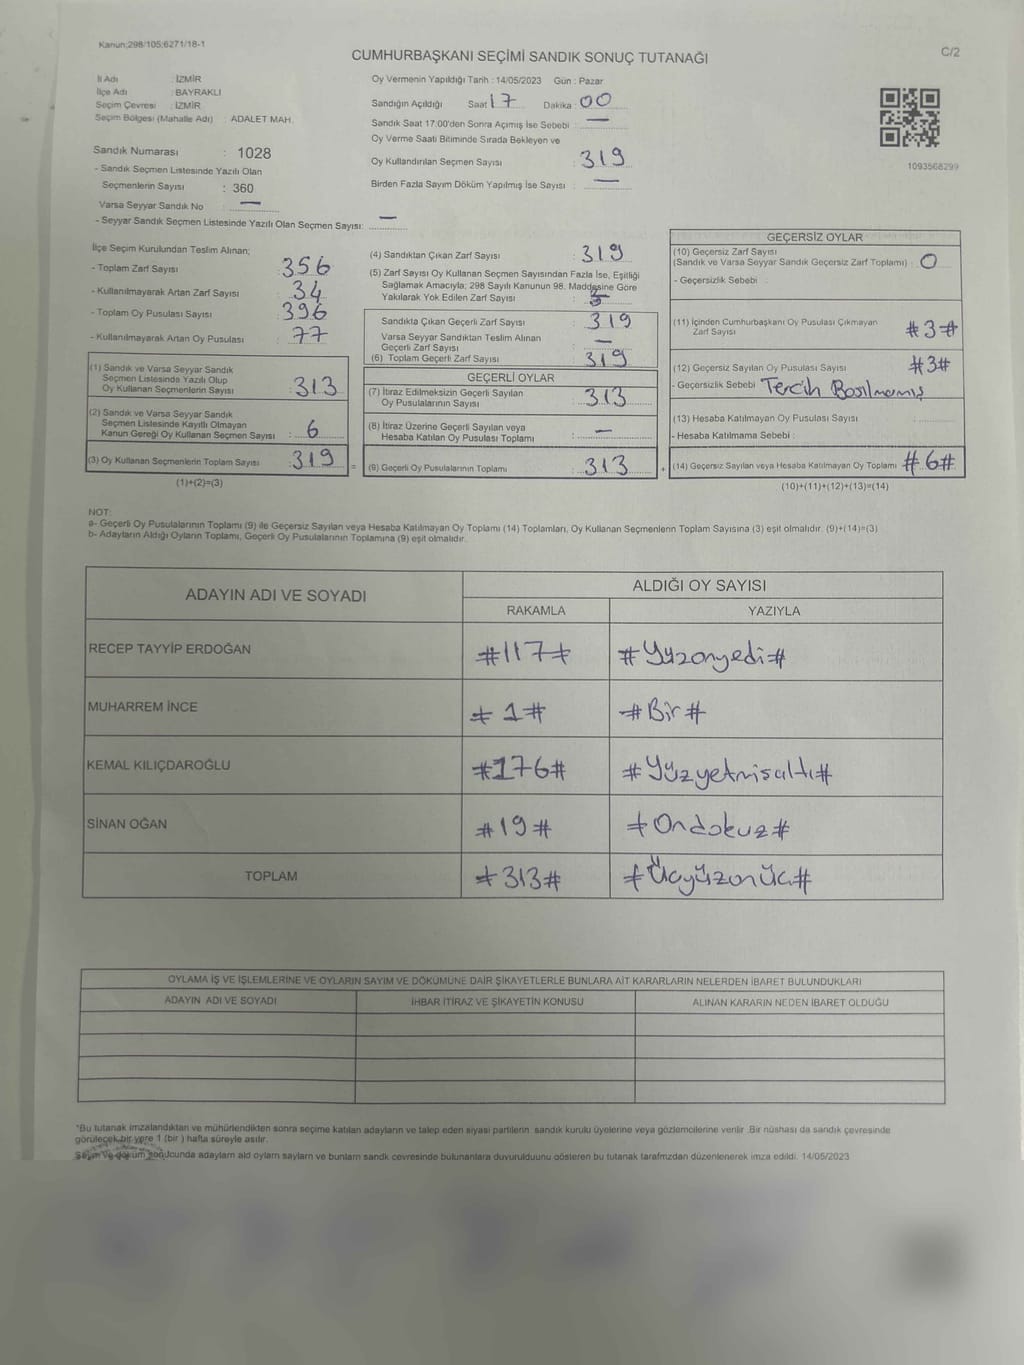 Kanun:298/105;6271/18-1
C/2
CUMHURBAŞKANI SEÇİMİ SANDIK SONUÇ TUTANAĞI
İl Adı : İZMİR
İlçe Adı : BAYRAKLI
Seçim Çevresi : İZMİR
Seçim Bölgesi (Mahalle Adı) : ADALET MAH.
Sandık Numarası : 1028
- Sandık Seçmen Listesinde Yazılı Olan
Seçmenlerin Sayısı : 360
Varsa Seyyar Sandık No —
- Seyyar Sandık Seçmen Listesinde Yazılı Olan Seçmen Sayısı: —
Oy Vermenin Yapıldığı Tarih : 14/05/2023 Gün : Pazar
Sandığın Açıldığı Saat 17 Dakika 00
Sandık Saat 17:00'den Sonra Açımış İse Sebebi : —
Oy Verme Saati Bitiminde Sırada Bekleyen ve
Oy Kullandırılan Seçmen Sayısı : 319
Birden Fazla Sayım Döküm Yapılmış İse Sayısı : —
1093568299
İlçe Seçim Kurulundan Teslim Alınan;
- Toplam Zarf Sayısı : 356
- Kullanılmayarak Artan Zarf Sayısı : 34
- Toplam Oy Pusulası Sayısı : 396
- Kullanılmayarak Artan Oy Pusulası : 77
(1) Sandık ve Varsa Seyyar Sandık
Seçmen Listesinde Yazılı Olup
Oy Kullanan Seçmenlerin Sayısı : 313
(2) Sandık ve Varsa Seyyar Sandık
Seçmen Listesinde Kayıtlı Olmayan
Kanun Gereği Oy Kullanan Seçmen Sayısı : 6
(3) Oy Kullanan Seçmenlerin Toplam Sayısı : 319
(1)+(2)=(3)
(4) Sandıktan Çıkan Zarf Sayısı : 319
(5) Zarf Sayısı Oy Kullanan Seçmen Sayısından Fazla İse, Eşitliği
Sağlamak Amacıyla; 298 Sayılı Kanunun 98. Maddesine Göre
Yakılarak Yok Edilen Zarf Sayısı :
Sandıkta Çıkan Geçerli Zarf Sayısı : 319
Varsa Seyyar Sandıktan Teslim Alınan
Geçerli Zarf Sayısı : —
(6) Toplam Geçerli Zarf Sayısı 319
GEÇERLİ OYLAR
(7) İtiraz Edilmeksizin Geçerli Sayılan
Oy Pusulalarının Sayısı : 313
(8) İtiraz Üzerine Geçerli Sayılan veya
Hesaba Katılan Oy Pusulası Toplamı : —
=
(9) Geçerli Oy Pusulalarının Toplamı : 313
+
GEÇERSİZ OYLAR
(10) Geçersiz Zarf Sayısı
(Sandık ve Varsa Seyyar Sandık Geçersiz Zarf Toplamı) : 0
- Geçersizlik Sebebi :
(11) İçinden Cumhurbaşkanı Oy Pusulası Çıkmayan
Zarf Sayısı #3#
(12) Geçersiz Sayılan Oy Pusulası Sayısı #3#
- Geçersizlik Sebebi Tercih Basılmamış
(13) Hesaba Katılmayan Oy Pusulası Sayısı
- Hesaba Katılmama Sebebi :
(14) Geçersiz Sayılan veya Hesaba Katılmayan Oy Toplamı #6#
(10)+(11)+(12)+(13)=(14)
NOT:
a- Geçerli Oy Pusulalarının Toplamı (9) ile Geçersiz Sayılan veya Hesaba Katılmayan Oy Toplamı (14) Toplamları, Oy Kullanan Seçmenlerin Toplam Sayısına (3) eşit olmalıdır. (9)+(14)=(3)
b- Adayların Aldığı Oyların Toplamı, Geçerli Oy Pusulalarının Toplamına (9) eşit olmalıdır.
ADAYIN ADI VE SOYADI
ALDIĞI OY SAYISI
RAKAMLA YAZIYLA
RECEP TAYYİP ERDOĞAN #117# #Yüzonyedi#
MUHARREM İNCE #1# #Bir#
KEMAL KILIÇDAROĞLU #176# #Yüzyetmişaltı#
SİNAN OĞAN #19# #Ondokuz#
TOPLAM #313# #Üçyüzonüç#
OYLAMA İŞ VE İŞLEMLERİNE VE OYLARIN SAYIM VE DÖKÜMÜNE DAİR ŞİKAYETLERLE BUNLARA AİT KARARLARIN NELERDEN İBARET BULUNDUKLARI
ADAYIN ADI VE SOYADI İHBAR İTİRAZ VE ŞİKAYETİN KONUSU ALINAN KARARIN NEDEN İBARET OLDUĞU
*Bu tutanak imzalandıktan ve mühürlendikten sonra seçime katılan adayların ve talep eden siyasi partilerin sandık kurulu üyelerine veya gözlemcilerine verilir .Bir nüshası da sandık çevresinde
görülecek bir yere 1 (bir ) hafta süreyle asılır.
Sayım ve döküm sonucunda adayların ald oyların sayların ve bunların sandk çevresinde bulunanlara duyurulduunu gösteren bu tutanak tarafmzdan düzenlenerek imza edildi. 14/05/2023